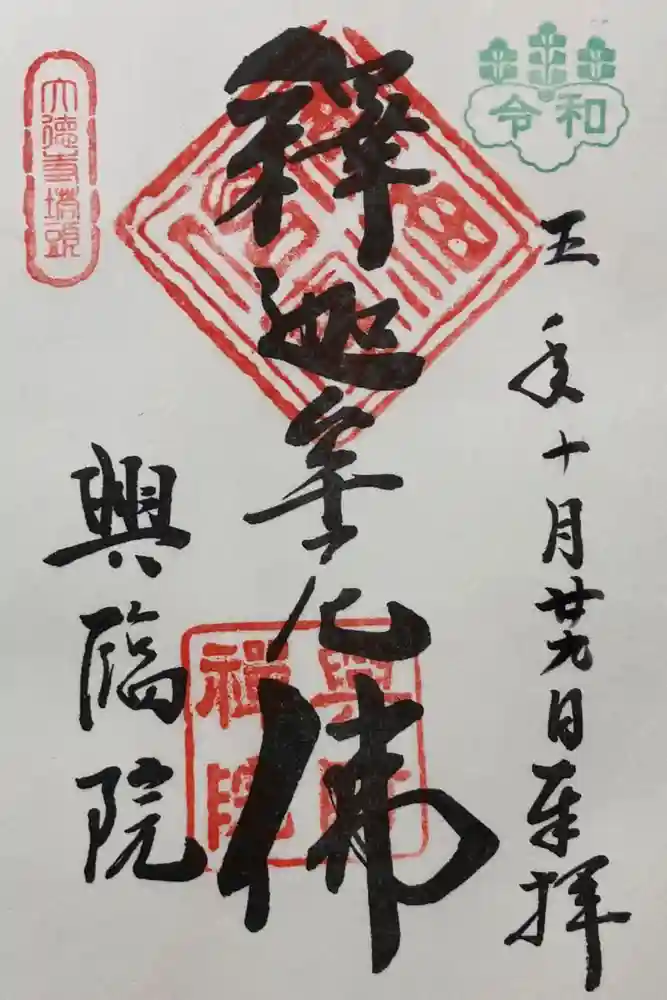 令和
五年十月廿九日奉拝
釋迦牟尼佛
大徳寺塔頭
興臨院